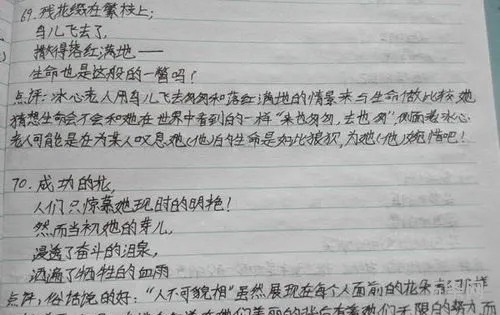 69.残花缀在繁枝上;
鸟儿飞去了,
撒得落红满地——
生命也是这般的一瞥吗?
点评:冰心老人用鸟儿飞去匆匆和落红满地的情景来与生命做比较,她
猜想生命会不会和她在世界中看到的一样“来也匆匆,去也匆”,侧面老冰心
老人可能是在为某人叹息她(他)的生命是如此狼狈,为她(他)惋惜吧!
70.成功的花,
人们只惊慕她现时的明艳!
然而当初她的芽儿,
浸透了奋斗的泪泉,
洒满了牺牲的血雨
点评:俗话说的好:“人不可貌相”虽然展现在每个人面前的花朵
她们美丽的背后有着她们无限的努力,而